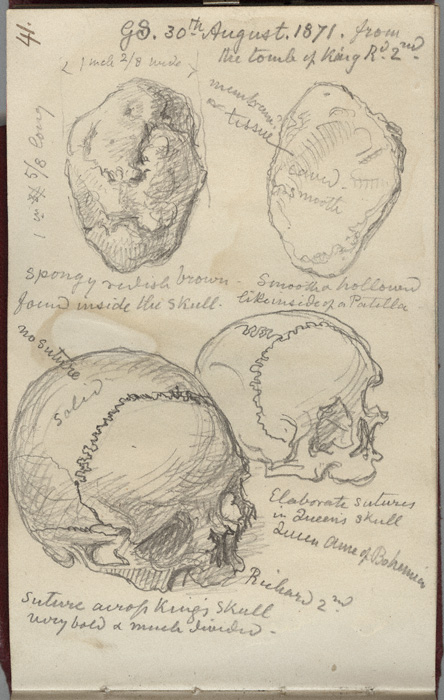 41.
GS. 30th August. 1871. from
the tomb of King Rd. 2nd.
1 inch 2/8 wide
1 in 5/8 long
membrane?
or tissue
smooth
spongy redish brown
found inside the skull.
Smooth & hollowed
like inside of a Patella
no suture
Solid
Elaborate sutures
in Queens skull
Queen Anne of Bohemia
Richard 2nd
Suture across Kings Skull
very bold & much divided.